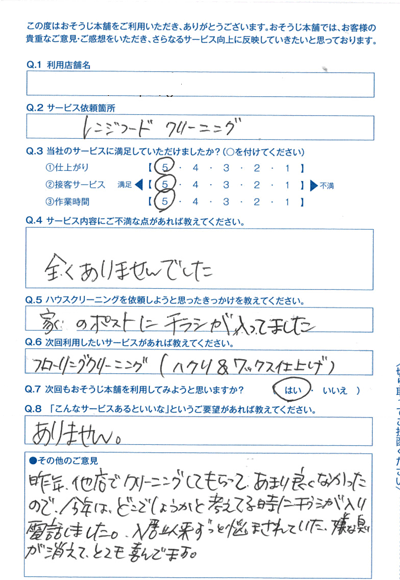 この度はおそうじ本舗をご利用いただき、ありがとうございます。おそうじ本舗では、お客様の
貴重なご意見・ご感想をいただき、さらなるサービス向上に反映していきたいと思っております。
Q.1 利用店舗名
Q.2 サービス依頼箇所
レンジフード クリーニング
Q.3 当社のサービスに満足していただけましたか?(○を付けてください)
①仕上がり 【 5 ・ 4 ・ 3 ・ 2 ・ 1 】
②接客サービス 満足 【 5 ・ 4 ・ 3 ・ 2 ・ 1 】 不満
③作業時間 【 5 ・ 4 ・ 3 ・ 2 ・ 1 】
Q.4 サービス内容にご不満な点があれば教えてください。
全くありませんでした
Q.5 ハウスクリーニングを依頼しようと思ったきっかけを教えてください。
家のポストにチラシが入ってました
Q.6 次回利用したいサービスがあれば教えてください。
フローリングクリーニング (ハクリ&ワックス仕上げ)
Q.7 次回もおそうじ本舗を利用してみようと思いますか? ( はい ・ いいえ )
Q.8 「こんなサービスあるといいな」というご要望があれば教えてください。
ありません。
●その他のご意見
昨年、他店でクリーニングしてもらって、あまり良くなかった
ので、今年は、どこでしょうかと考えてる時にチラシが入り
電話しました。入居以来ずっと悩まされていた、嫌な臭
が消えて、とても喜んでます。